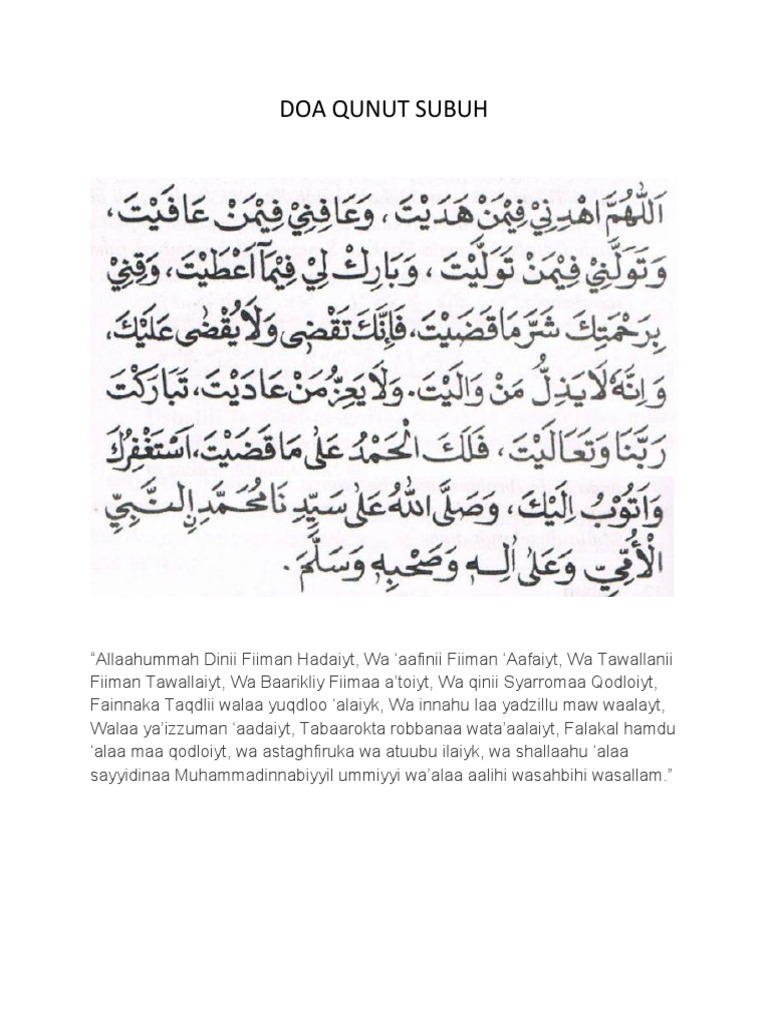 DOA QUNUT SUBUH
اَللّٰهُمَّ اهْدِنِيْ فِيْمَنْ هَدَيْتَ، وَعَافِنِيْ فِيْمَنْ عَافَيْتَ،
وَتَوَلَّنِيْ فِيْمَنْ تَوَلَّيْتَ، وَبَارِكْ لِيْ فِيْمَآ اَعْطَيْتَ، وَقِنِيْ
بِرَحْمَتِكَ شَرَّ مَا قَضَيْتَ، فَاِنَّكَ تَقْضِى وَلَا يُقْضٰى عَلَيْكَ،
وَاِنَّهُ لَا يَذِلُّ مَنْ وَالَيْتَ. وَلَا يَعِزُّ مَنْ عَادَيْتَ، تَبَارَكْتَ
رَبَّنَا وَتَعَالَيْتَ، فَلَكَ الْحَمْدُ عَلٰى مَا قَضَيْتَ، اَسْتَغْفِرُكَ
وَاَتُوْبُ اِلَيْكَ، وَصَلَّى اللّٰهُ عَلٰى سَيِّدِنَا مُحَمَّدِ ࣙالنَّبِيِّ
الْاُمِّيِّ وَعَلٰى اٰلِهٖ وَصَحْبِهٖ وَسَلَّمَ.
“Allaahummah Dinii Fiiman Hadaiyt, Wa ‘aafinii Fiiman ‘Aafaiyt, Wa Tawallanii
Fiiman Tawallaiyt, Wa Baarikliy Fiimaa a’toiyt, Wa qinii Syarromaa Qodloiyt,
Fainnaka Taqdlii walaa yuqdloo ‘alaiyk, Wa innahu laa yadzillu maw waalayt,
Walaa ya’izzuman ‘aadaiyt, Tabaarokta robbanaa wata’aalaiyt, Falakal hamdu
‘alaa maa qodloiyt, wa astaghfiruka wa atuubu ilaiyk, wa shallaahu ‘alaa
sayyidinaa Muhammadinnabiyyil ummiyyi wa’alaa aalihi wasahbihi wasallam.”